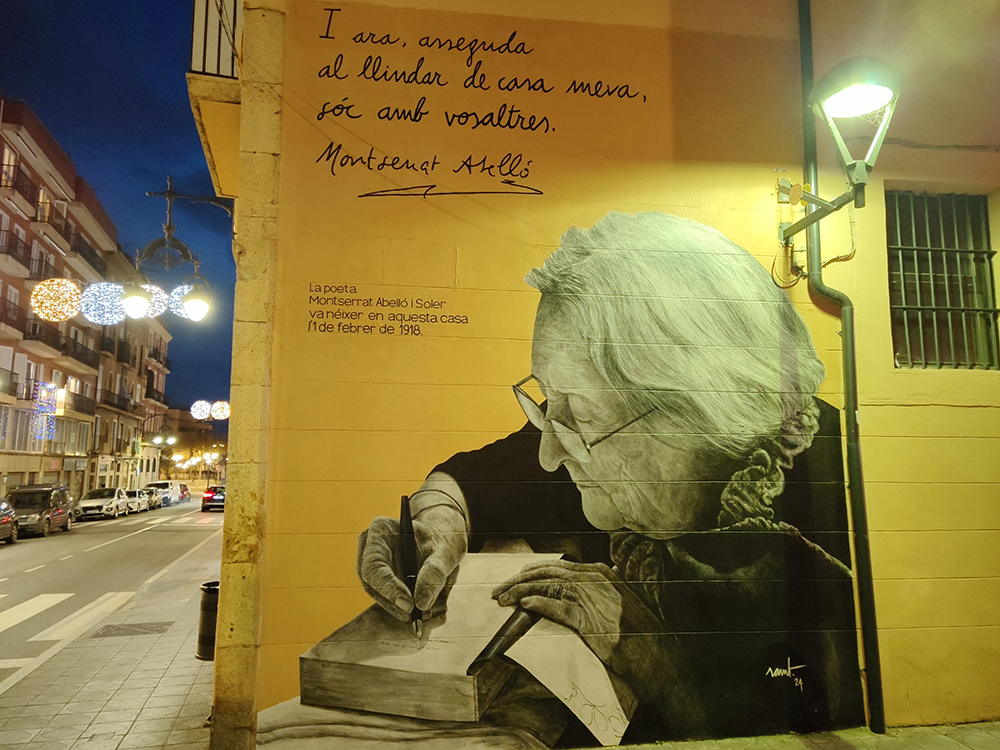 I ara, asseguda
al llindar de casa meva,
sóc amb vosaltres.
Montserrat Abelló
La poeta
Montserrat Abelló i Soler
va néixer en aquesta casa
l'1 de febrer de 1918.
24